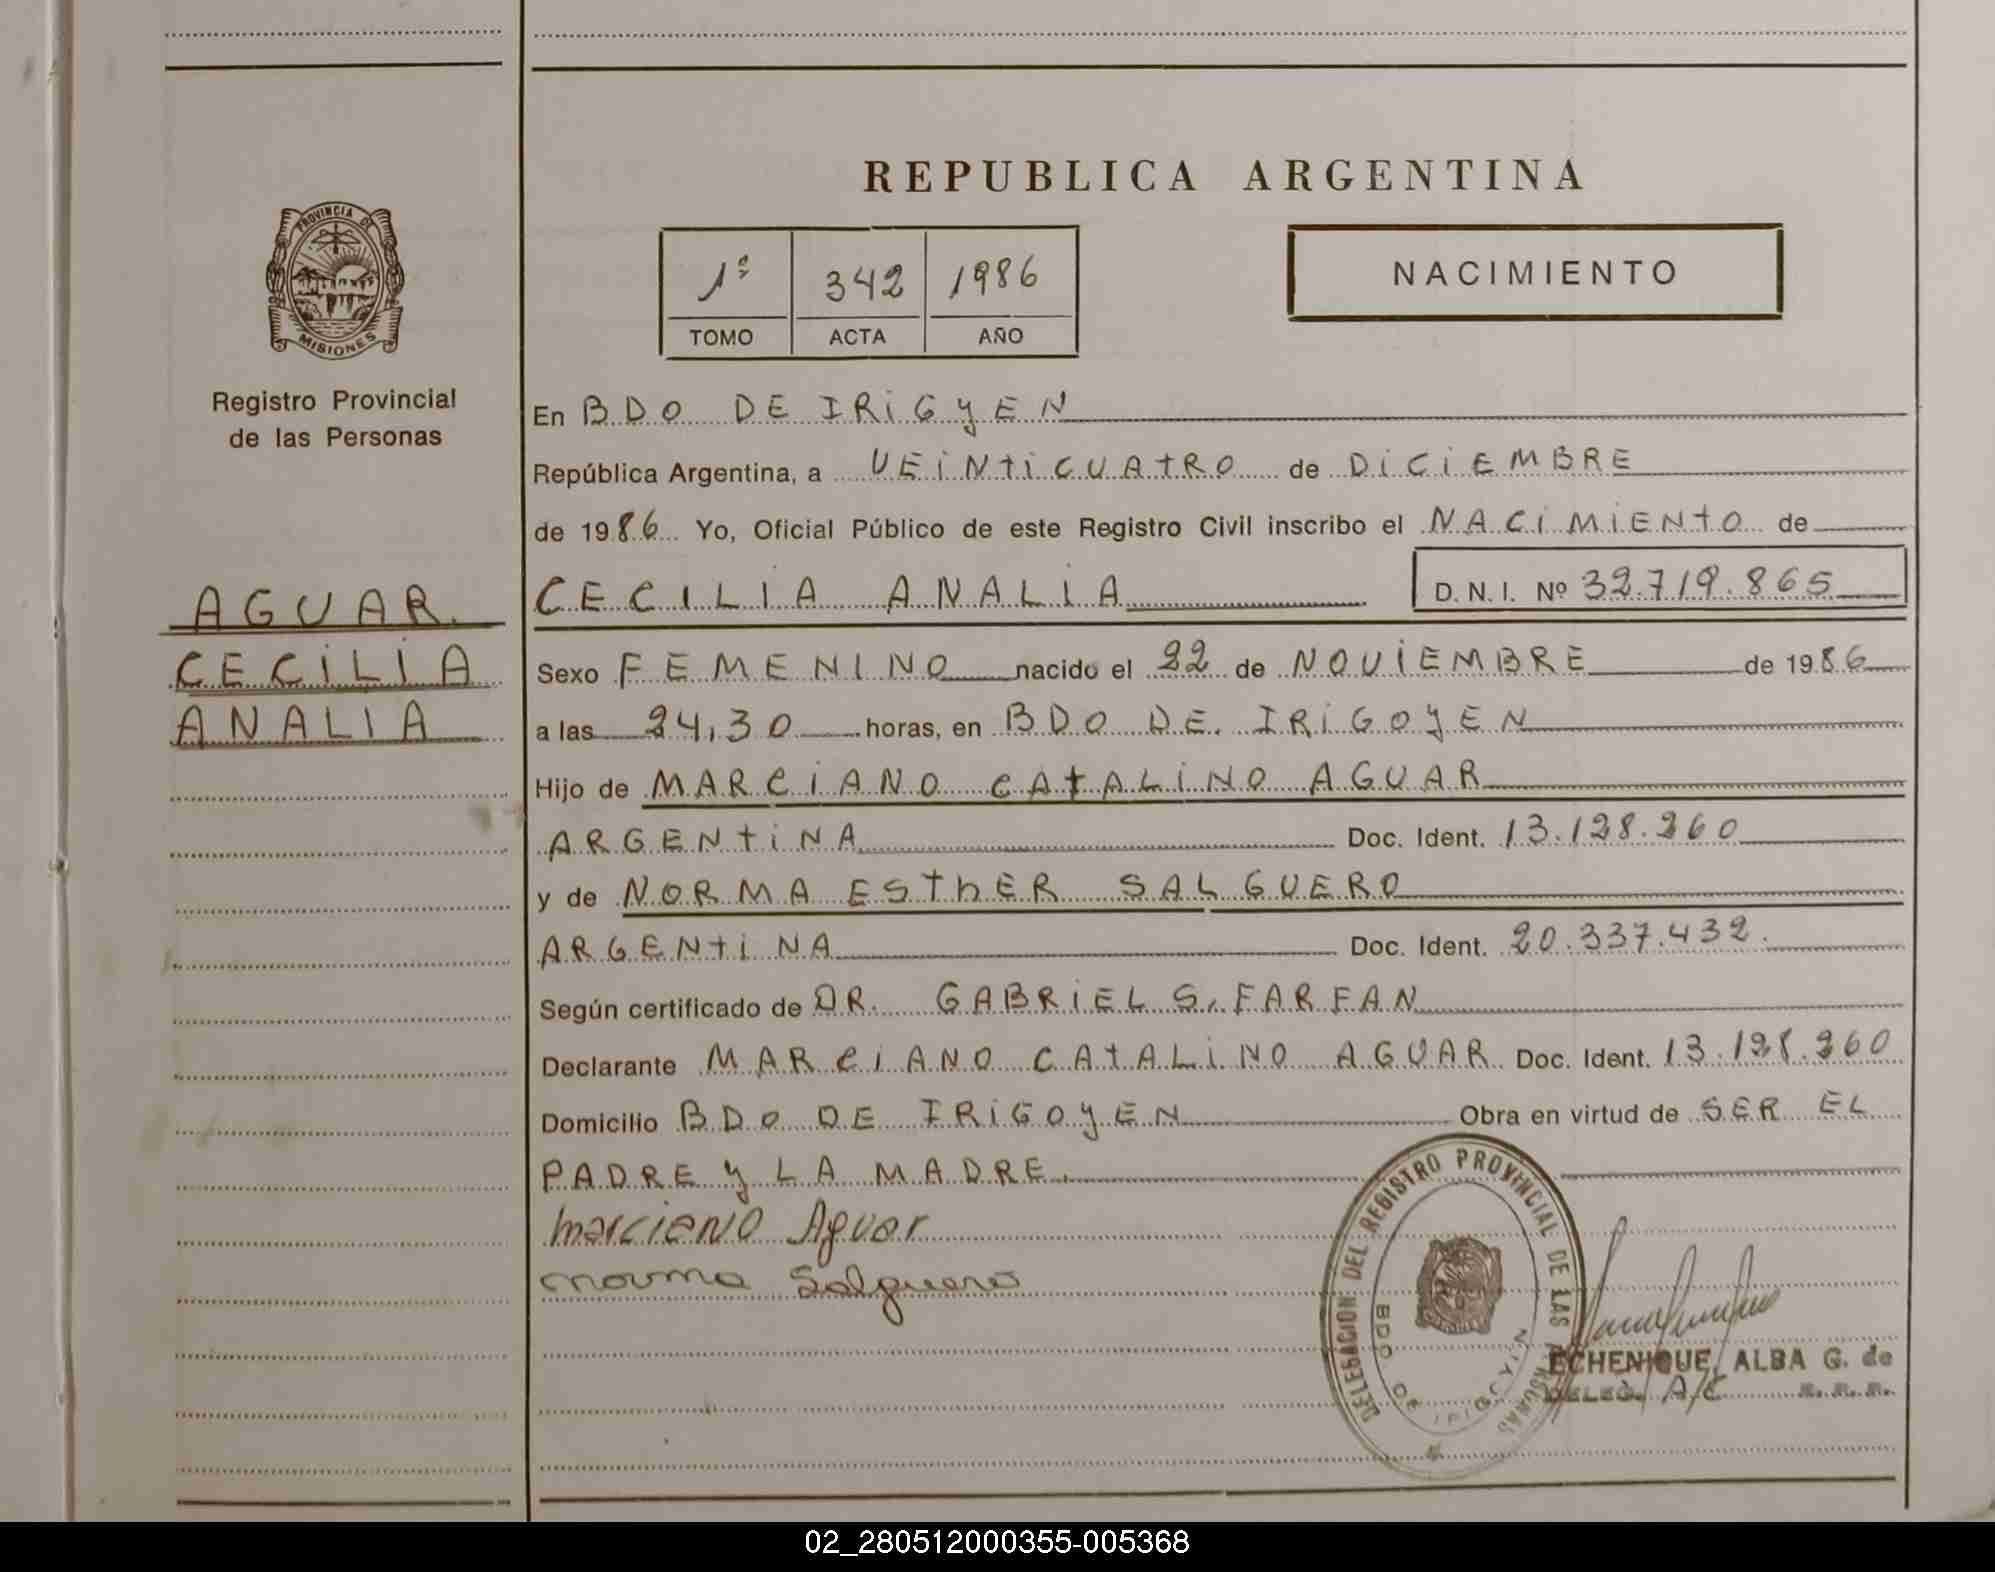 REPUBLICA ARGENTINA
PROVINCIA DE
MISIONES
Registro Provincial
de las Personas
1º 342 1986
TOMO ACTA AÑO
NACIMIENTO
AGUAR.
CECILIA
ANALIA
En BDO DE IRIGYEN
República Argentina, a VEINTICUATRO de DICIEMBRE
de 1986 Yo, Oficial Público de este Registro Civil inscribo el NACIMIENTO de
CECILIA ANALIA D.N.I. Nº 32.719.865
Sexo FEMENINO nacido el 22 de NOVIEMBRE de 1986
a las 24,30 horas, en BDO DE. IRIGOYEN
Hijo de MARCIANO CATALINO AGUAR
ARGENTINA Doc. Ident. 13.128.260
y de NORMA ESTHER SALGUERO
ARGENTINA Doc. Ident. 20.337.432.
Según certificado de DR. GABRIEL S. FARFAN
Declarante MARCIANO CATALINO AGUAR Doc. Ident. 13.128.260
Domicilio BDO DE IRIGOYEN Obra en virtud de SER EL
PADRE Y LA MADRE.
Marciano Aguar
Norma Salguero
DELEGACION DEL REGISTRO PROVINCIAL DE LAS PERSONAS
BDO DE IRIGOYEN
ECHENIQUE, ALBA G. de
DELEG. A/C
02_280512000355-005368